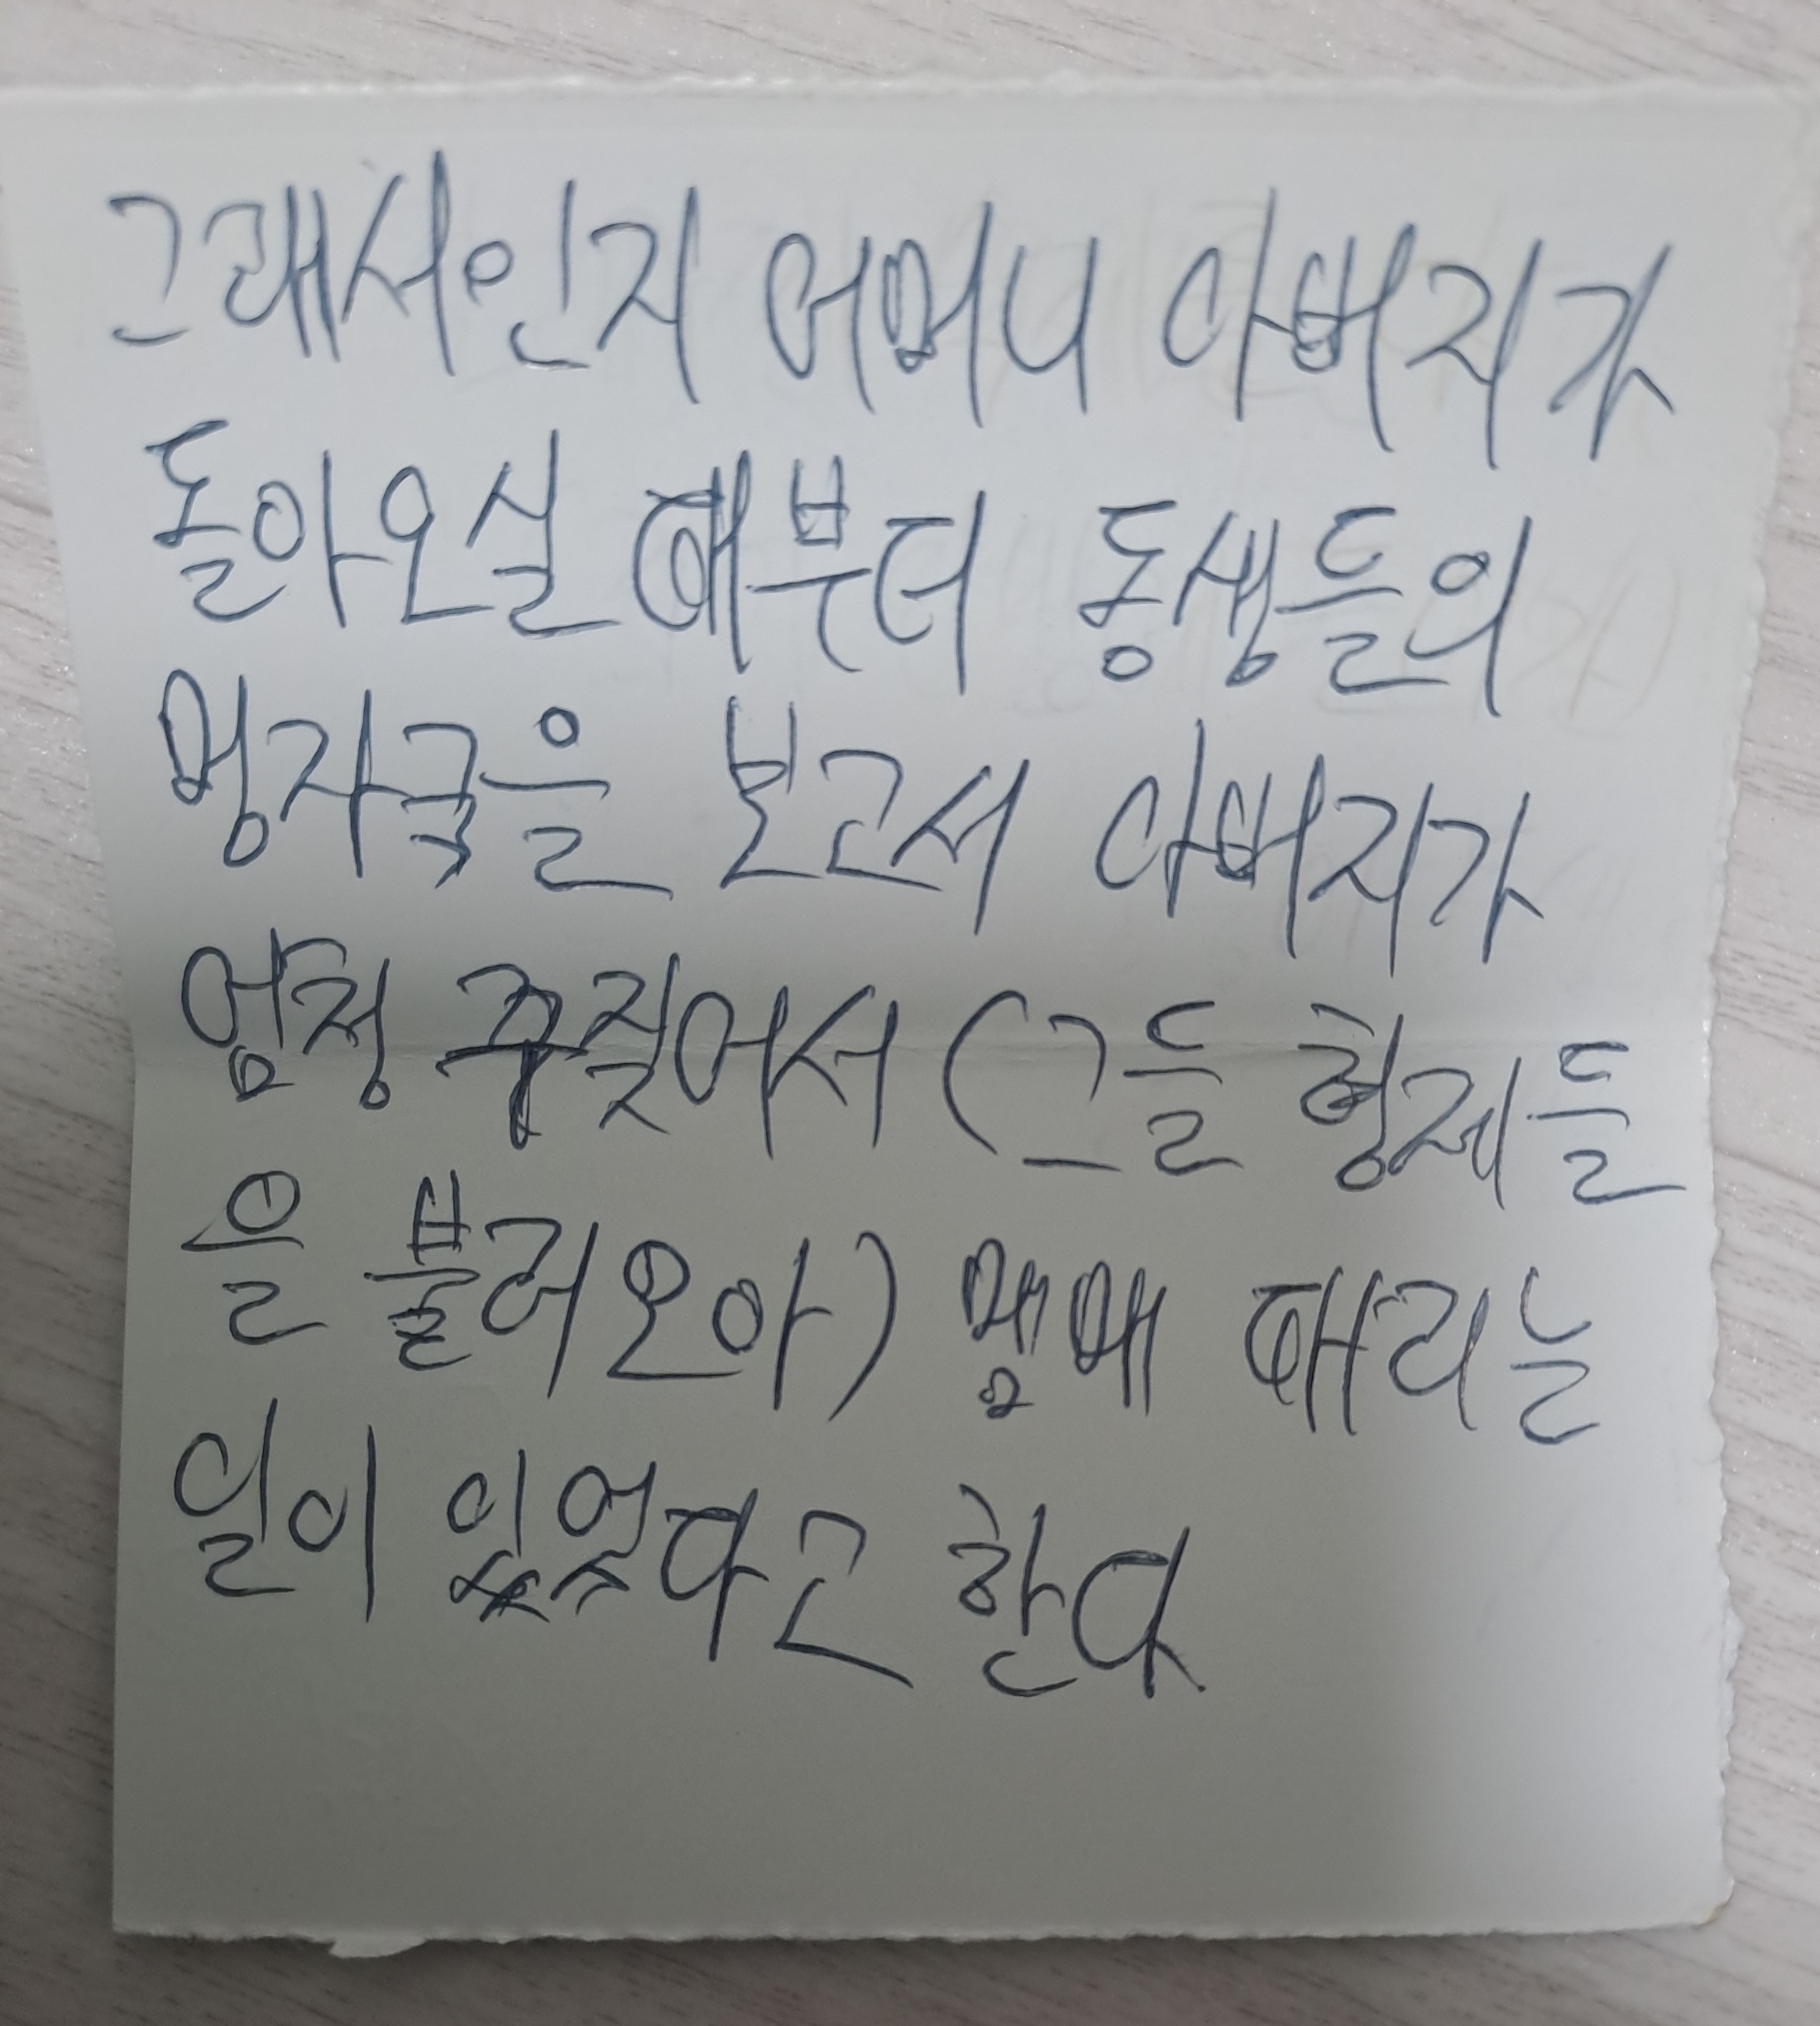 그래서인지 어머니 아버지가
돌아오실 때부터 동생들의
멍자국을 보고서 아버지가
엄청 꾸짖어서 (그들 형제들
을 불러 모아) 맴매 때리는
일이 있었다고 한다.